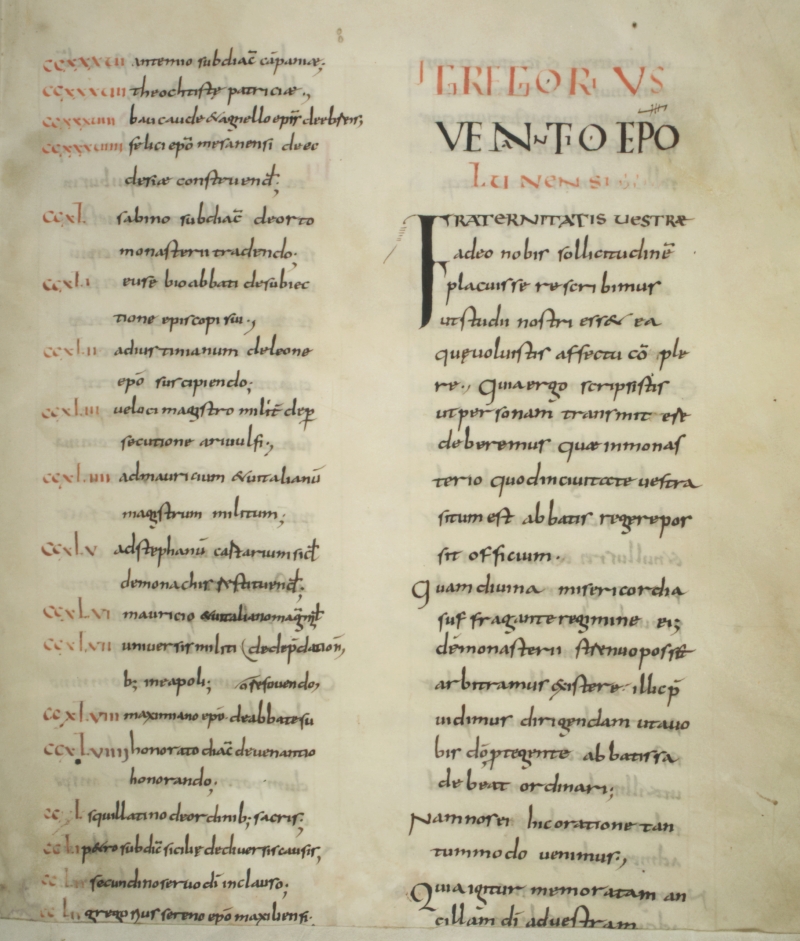 ccxxxuii antemio subdiac̄ cāpaniæ;
ccxxxuiii theochtiste patriciæ.,
ccxxxuiiii baucaude & agnello ep̄is deebseis;
ccxxxuiiii felici epō mesanensi de ec
clesiæ construend̄;
ccxl. sabino subdiac̄ de orto
monasterii tradendo;
ccxli eusebio abbati de subiec
tione episcopi sui.,
ccxlii ad iustinianum de leone
epō suscipiendo;
ccxliii ueloci magistro milit̄ de per
secutione ariulfi.,
ccxliiii ad mauricium & uitalianū
magistrum militum;
ccxlv ad stephanū cartarium sicl̄
de monachis restituend̄;
ccxlvi mauricio & uitaliano mag̅ mil̄
ccxlvii uniuersis militi
b; neapoli;
ccxlviii maximiano epō de abbate su
ccxlviiii honorato diac̄ de uenantio
honorando;
cc l. squillatino de ordinib; sacris;
cc li petro subdiac̄ sicilię de diuersis causis;
cc lii secundino seruo dī inclauso;
cc lii gregorius sereno epō maxiliensi.
GREGORIVS
VENANTIO EPŌ
LUNENSI
FRATERNITATIS UESTRÆ
adeo nobis sollicitudinē
placuisse rescribimus
ut studii nostri ess& ea
quę uoluistis affectu cō ple
re., Quia ergo scripsistis
ut personam transmittere
deberemus quæ in monas
terio quod in ciuitate uestra
situm est abbatis regere por
sit officium.
Quam diuina misericordia
suffragante regimine ei;
dē monasterii strenuo posse
arbitramur existere illic p̄
uidimus dirigendam ut a uo
bis dō ptegente abbatissa
debeat ordinari;
Nam nos ei hic oratione tan
tummodo uenimus.,
Quia igitur memoratam an
cillam dī ad uestram